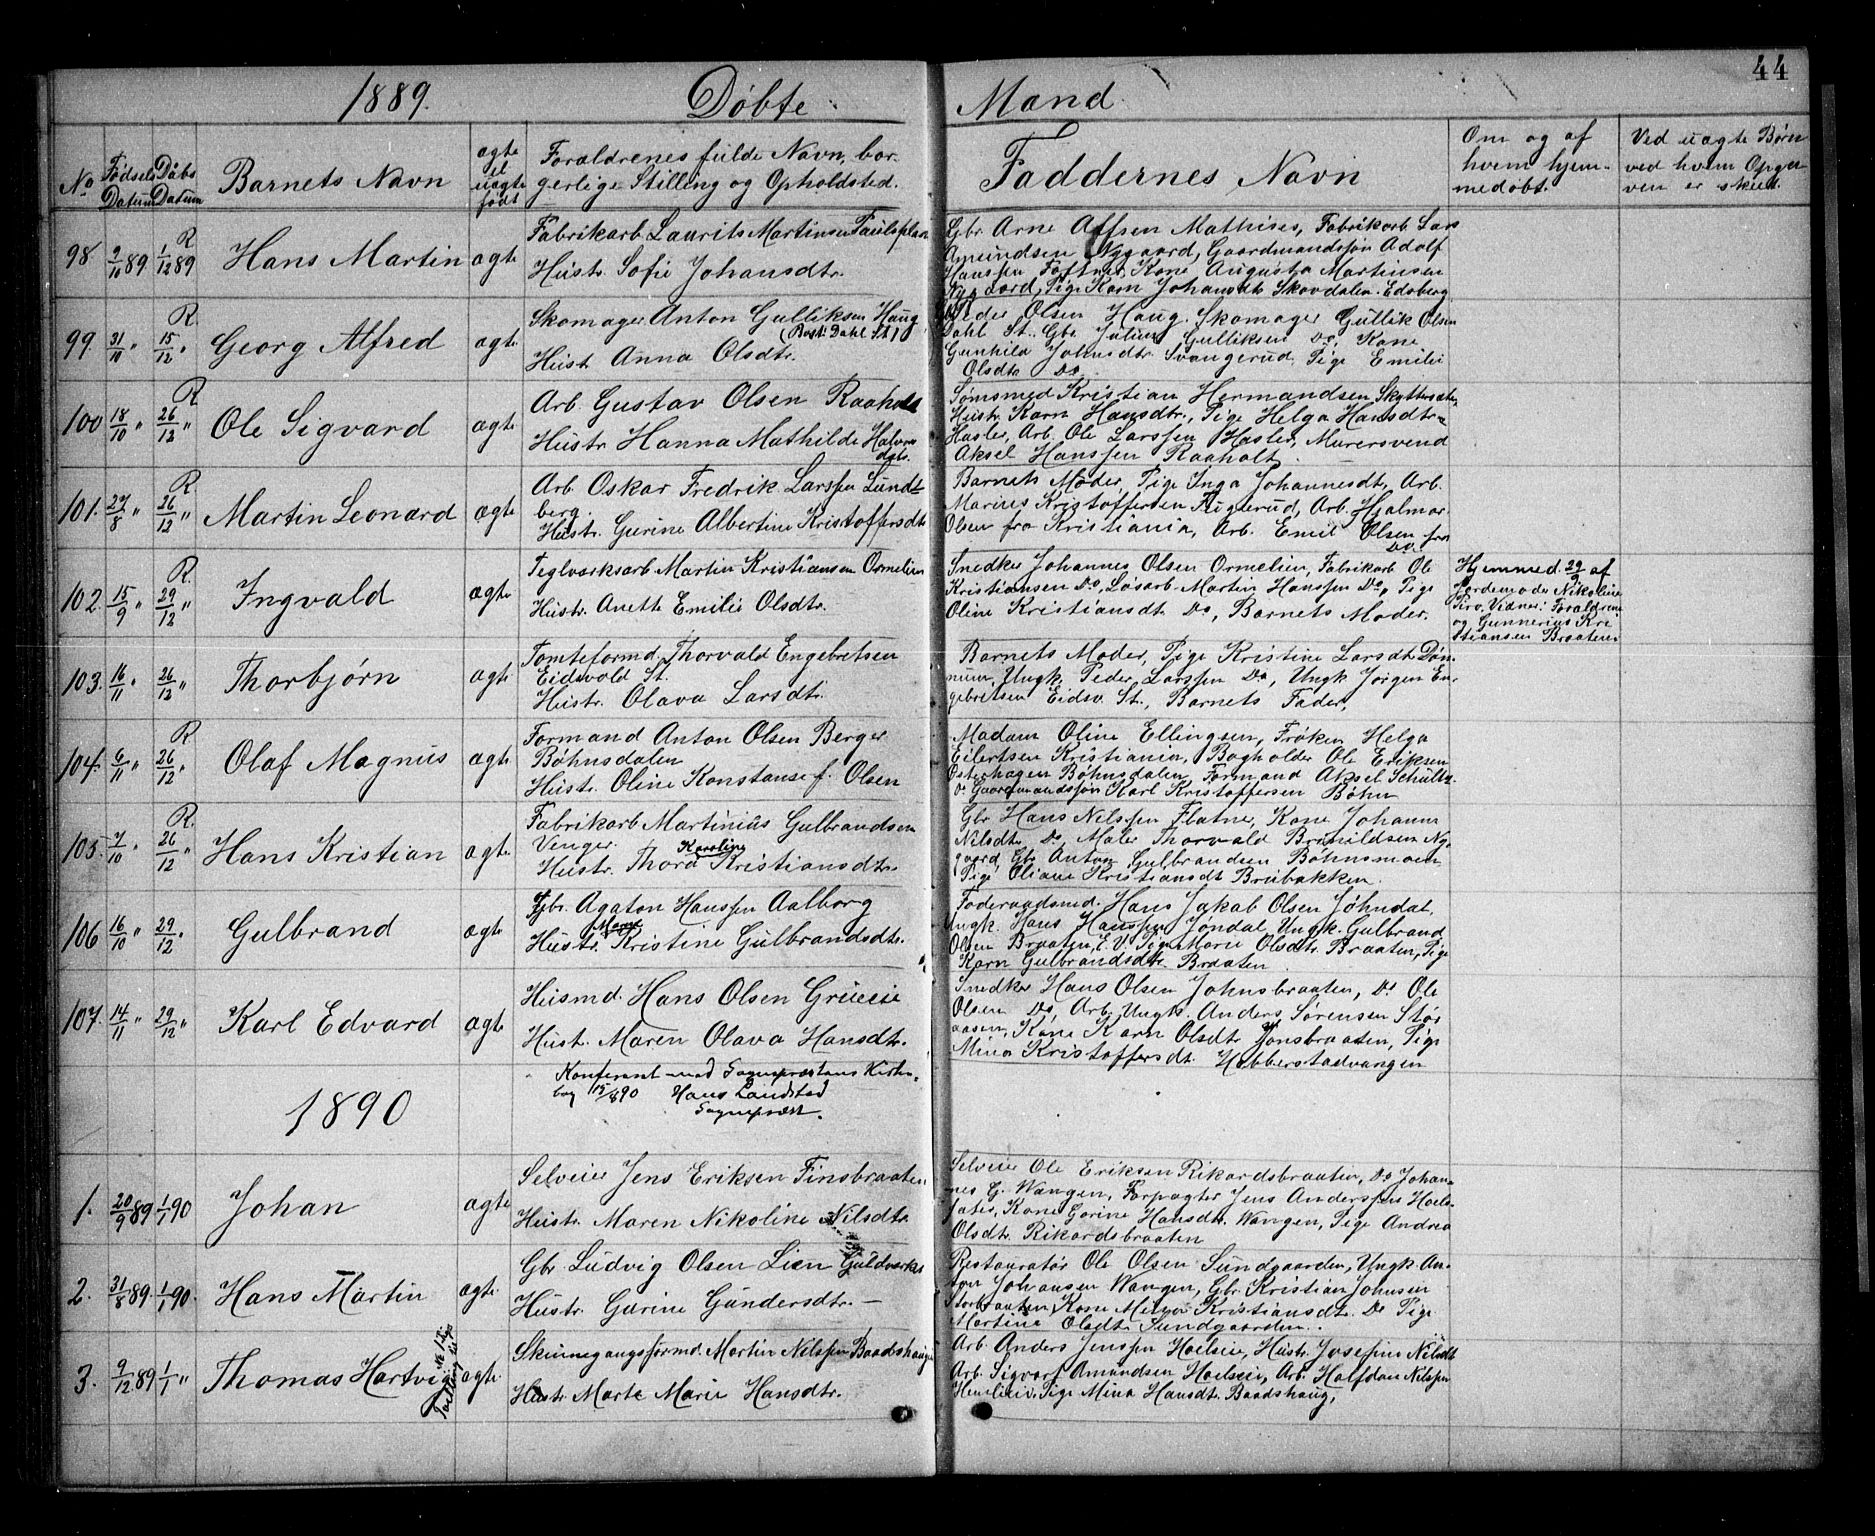 44
1889. Døbte Mænd.
No
Fødsels Datum
Døbs Datum
Barnets Navn
ægte el uægte født
Forældrenes fulde Navn, bor-
gerlige Stilling og Opholdsted.
Faddernes Navn
Om og af
hvem hjem-
medøbt.
Ved uægte Børn
ved hvem Opga-
ven er skeet.
98. 9/10 89 R 1/12 89 Hans Martin ægte
Fabrikarb. Laurits Martinsen
Hustr. Sofie Johansdtr.
Gbr. Arne Alfsen Mathises, Fabrikarb Lars
Amundsen Nygaard, Gaardmandssøn Adolf
Hanssen Toftner, Kone Augusta Martinsen
Nygaard, Pige Karn Johansdt. Skovdalen Edsberg
99. 31/10 " R. 15/12 " Georg Alfred ægte
Skomager Anton Gulliksen Haug
(Bost. Dahl St.)
Hustr. Anna Olsdtr.
Peder Olsen Haug. Skomager Gullik Olsen
Dahl St. Gbr. Julius Gulliksen Do, Kone
Gunhild Johnsdtr. Svangerud, Pige Emilie
Olsdtr. Do
100 18/10 " R 26/12 " Ole Sigvard ægte
Arb. Gustav Olsen Raaholt
Hustr. Hanna Mathilde Halvors
dtr.
Sømsmed Kristian Hermandsen
Hustr. Karn Hansdtr., Pige Helga Hansdtr.
Hasler, Arb. Ole Larssen Hasler, Murersvend
Aksel Hanssen Raaholt.
101. 27/8 " R 26/12 " Martin Leonard ægte
Arb. Oskar Fredrik Larssen Lund-
berg.
Hustr. Gurine Albertine Kristoffersdtr
Barnets Moder, Pige Inga Johannesdt, Arb.
Marius Kristoffersen, Arb. Hjalmar
Olsen fra Kristiania, Arb. Emil Olsen fra
Do
102. 15/9 " R. 29/12 " Ingvald ægte
Teglværksarb Martin Kristiansen Ormelien
Hustr. Anette Emilie Olsdtr.
Snedker Johannes Olsen Ormelien, Fabrikarb Ole
Kristiansen Do, Løsarb. Martin Hanssen Do, Pige
Oline Kristiansdt Do, Barnets Moder.
Hjemmed. 29/9 af
Jordemoder Nikoline
Tiro. Vidner: Forældrene
og Gunnerius Kri
stiansen Braaten
103. 16/11 " 26/12 " Thorbjørn ægte
Tomteformd. Thorvald Engebretsen
Eidsvold St.
Hustr. Olava Larsdtr.
Barnets Moder, Pige Kristine Larsdt Døn-
num, Ungk. Peder Larssen Do, Ungk Jørgen En-
gebretsen Eidsv. St., Barnets Fader,
104. 6/11 " R 26/12 " Olaf Magnus ægte
Formand Anton Olsen Berger
Bøhnsdalen
Hustr. Oline Konstanse f. Olsen
Madam Oline Ellingsen, Frøken Helga
Eilertsen Kristiania, Bogholder Ole Eriksen
Østerhagen Bøhnsdalen, Formand Aksel Schultz
Do Gaardmandssøn Karl Kristoffersen Bøhn
105. 7/10 " R. 26/12 " Hans Kristian ægte
Fabrikarb Martinius Gulbrandsen
Venger.
Karoline
Hustr. Thora Kristiansdtr.
Gbr Hans Nilssen Flatner, Kone Johanne
Nilsdtr. Do, Maler Thorvald Brynildsen Ny-
gaard, Gbr. Anton Gulbrandsen Bøhnsmoen
Pige Eliane Kristiansdt Brubakken.
106 16/10 " 29/12 " Gulbrand ægte
Gbr. Agaton Hanssen Aalborg
Hustr. Kristine Gulbrandsdtr.
Føderaadsmd. Hans Jakob Olsen Jøhndal,
Ungk. Hans Hanssen Jøndal, Ungk. Gulbrand
Olsen Braaten, E. V. Pige Marie Olsdtr. Braaten, Pige
Karn Gulbrandsdtr. Braaten
107. 14/11 " 29/12 " Karl Edvard ægte
Husmd. Hans Olsen Grueeie
Hustr. Maren Olava Hansdtr.
Snedker Hans Olsen Johnsbraaten, Do Ole
Olsen Do, Arb. Ungk. Anders Sørensen Stør
aasen, Kone Karn Olsdtr Jonsbraaten, Pige
Mina Kristoffersdt. Habberstadvangen
Konfereret med Sognepræstens Kirke-
bog 15/ 890 Hans Landstad
Sognepræst.
1890
1. 20/9 89 1/1 90 Johan ægte
Selveier Jens Eriksen Finsbraaten
Hustr. Maren Nikoline Nilsdtr
Selveier Ole Eriksen Rikardsbraaten, Do Johan-
nes G. Wangen, Forpagter Jens Anderssen Hoels-
Kone Gorine Hansdt. Wangen, Pige Andrea
Olsdt. Rikardsbraaten
2. 31/8 89. 1/1 90. Hans Martin ægte
Gbr Ludvig Olsen Lien Guldværket
Hustr. Gurine Gundersdtr. —
Restauratør Ole Olsen Sundgaarden, Ungk. An-
ton Johansen Wangen, Gbr. Kristian Johnsen
Storbraaten, Kone Kristiansdt. Do Pige
Martine Olsdt. Sundgaarden.
3. 9/12 89 1/1 " Thomas Hartvig ægte
Tvilling
Skinnegangsformd. Martin Nilssen Baadshaug
Hustr Marte Marie Hansdtr.
Arb. Anders Jenssen Hoelseie, Hustr. Josefine Nilsdt
Arb. Sigvart Amundsen Hoelseie, Arb. Halfdan Nilssen
Pige Mina Hansdt. Baadshaug,